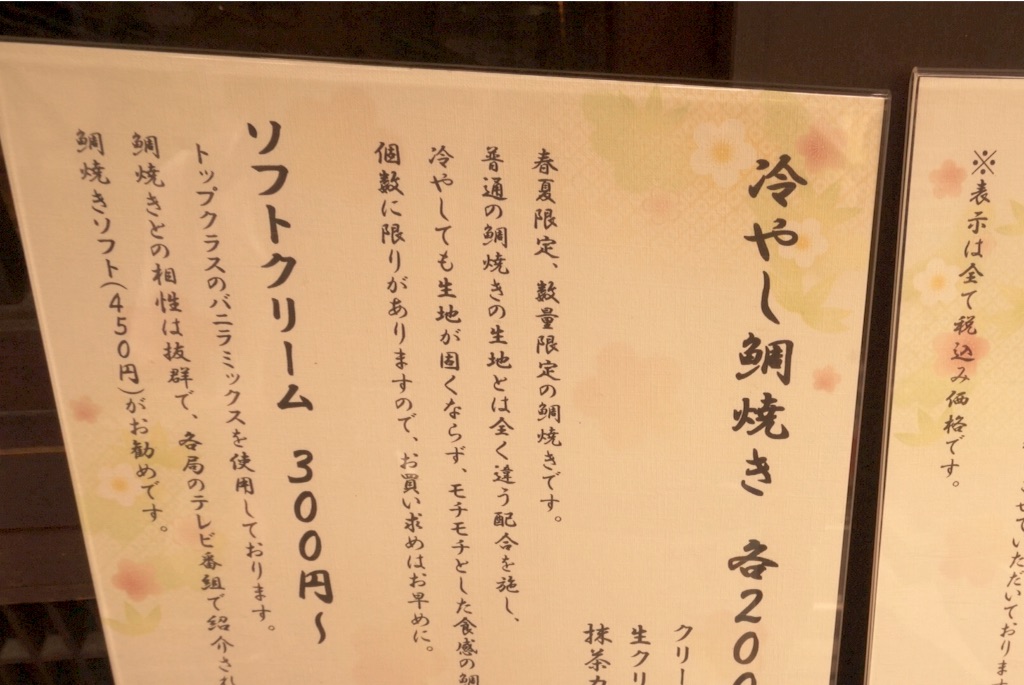 ※表示は全て税込み価格です。
せていただいております
冷やし鯛焼き 各200
クリー
生クリ
抹茶カ
春夏限定、数量限定の鯛焼きです。
普通の鯛焼きの生地とは全く違う配合を施し、
冷やしても生地が固くならず、モチモチとした食感の鯛
個数に限りがありますので、お買い求めはお早めに。
ソフトクリーム 300円〜
トップクラスのバニラミックスを使用しております。
鯛焼きとの相性は抜群で、各局のテレビ番組で紹介され
鯛焼きソフト(450円)がお勧めです。